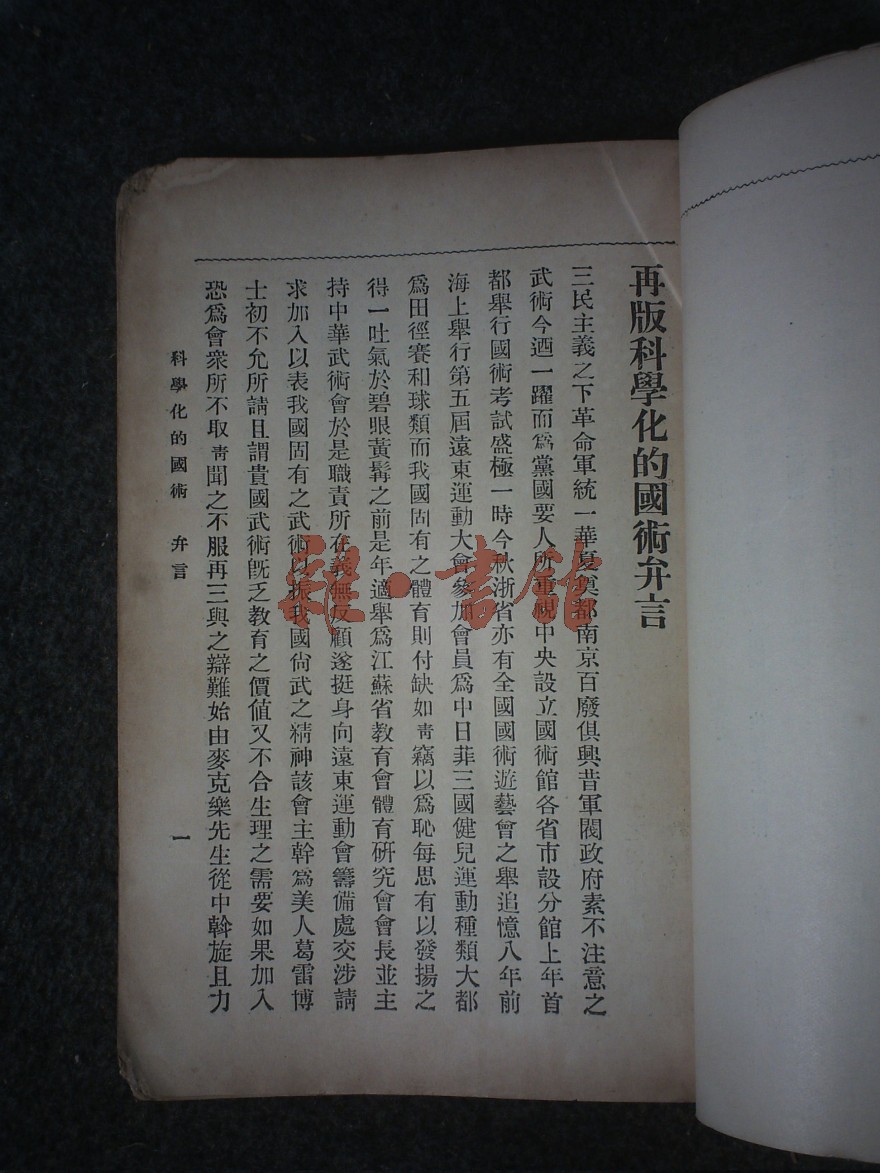 再版科學化的國術弁言
三民主義之下革命軍統一華夏奠都南京百廢俱興昔軍閥政府素不注意之
武術今迺一躍而爲黨國要人所重視中央設立國術館各省市設分館上年首
都舉行國術考試盛極一時今秋浙省亦有全國國術遊藝會之舉追憶八年前
海上舉行第五屆遠東運動大會參加會員爲中日菲三國健兒運動種類大都
爲田徑賽和球類而我國固有之體育則付缺如靑竊以爲恥每思有以發揚之
得一吐氣於碧眼黃髯之前是年適舉爲江蘇省教育會體育研究會會長並主
持中華武術會於是職責所在義無反顧遂挺身向遠東運動會籌備處交涉請
求加入以表我國固有之武術以振我國尙武之精神該會主幹爲美人葛雷博
士初不允所請且謂貴國武術旣乏教育之價値又不合生理之需要如果加入
恐爲會衆所不取靑聞之不服再三與之辯難始由麥克樂先生從中斡旋且力
科學化的國術 弁言
一
雜·書館